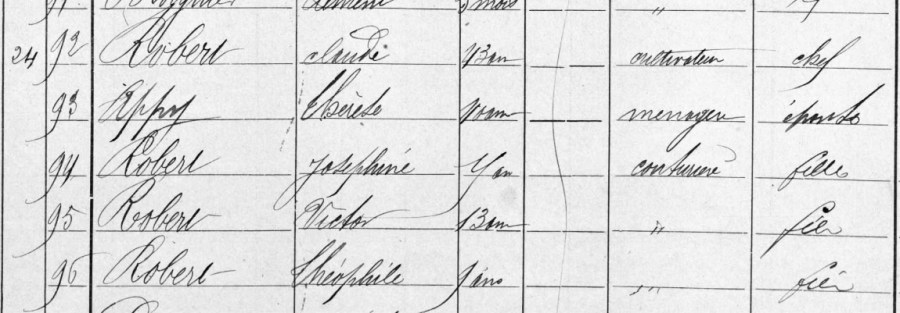 24 92 Robert claude cultivateur chef
93 Appy Thérèse menagere épouse
94 Robert Joséphine couturière fille
95 Robert Victor 13 ans " fils
96 Robert Théophile ans " fils